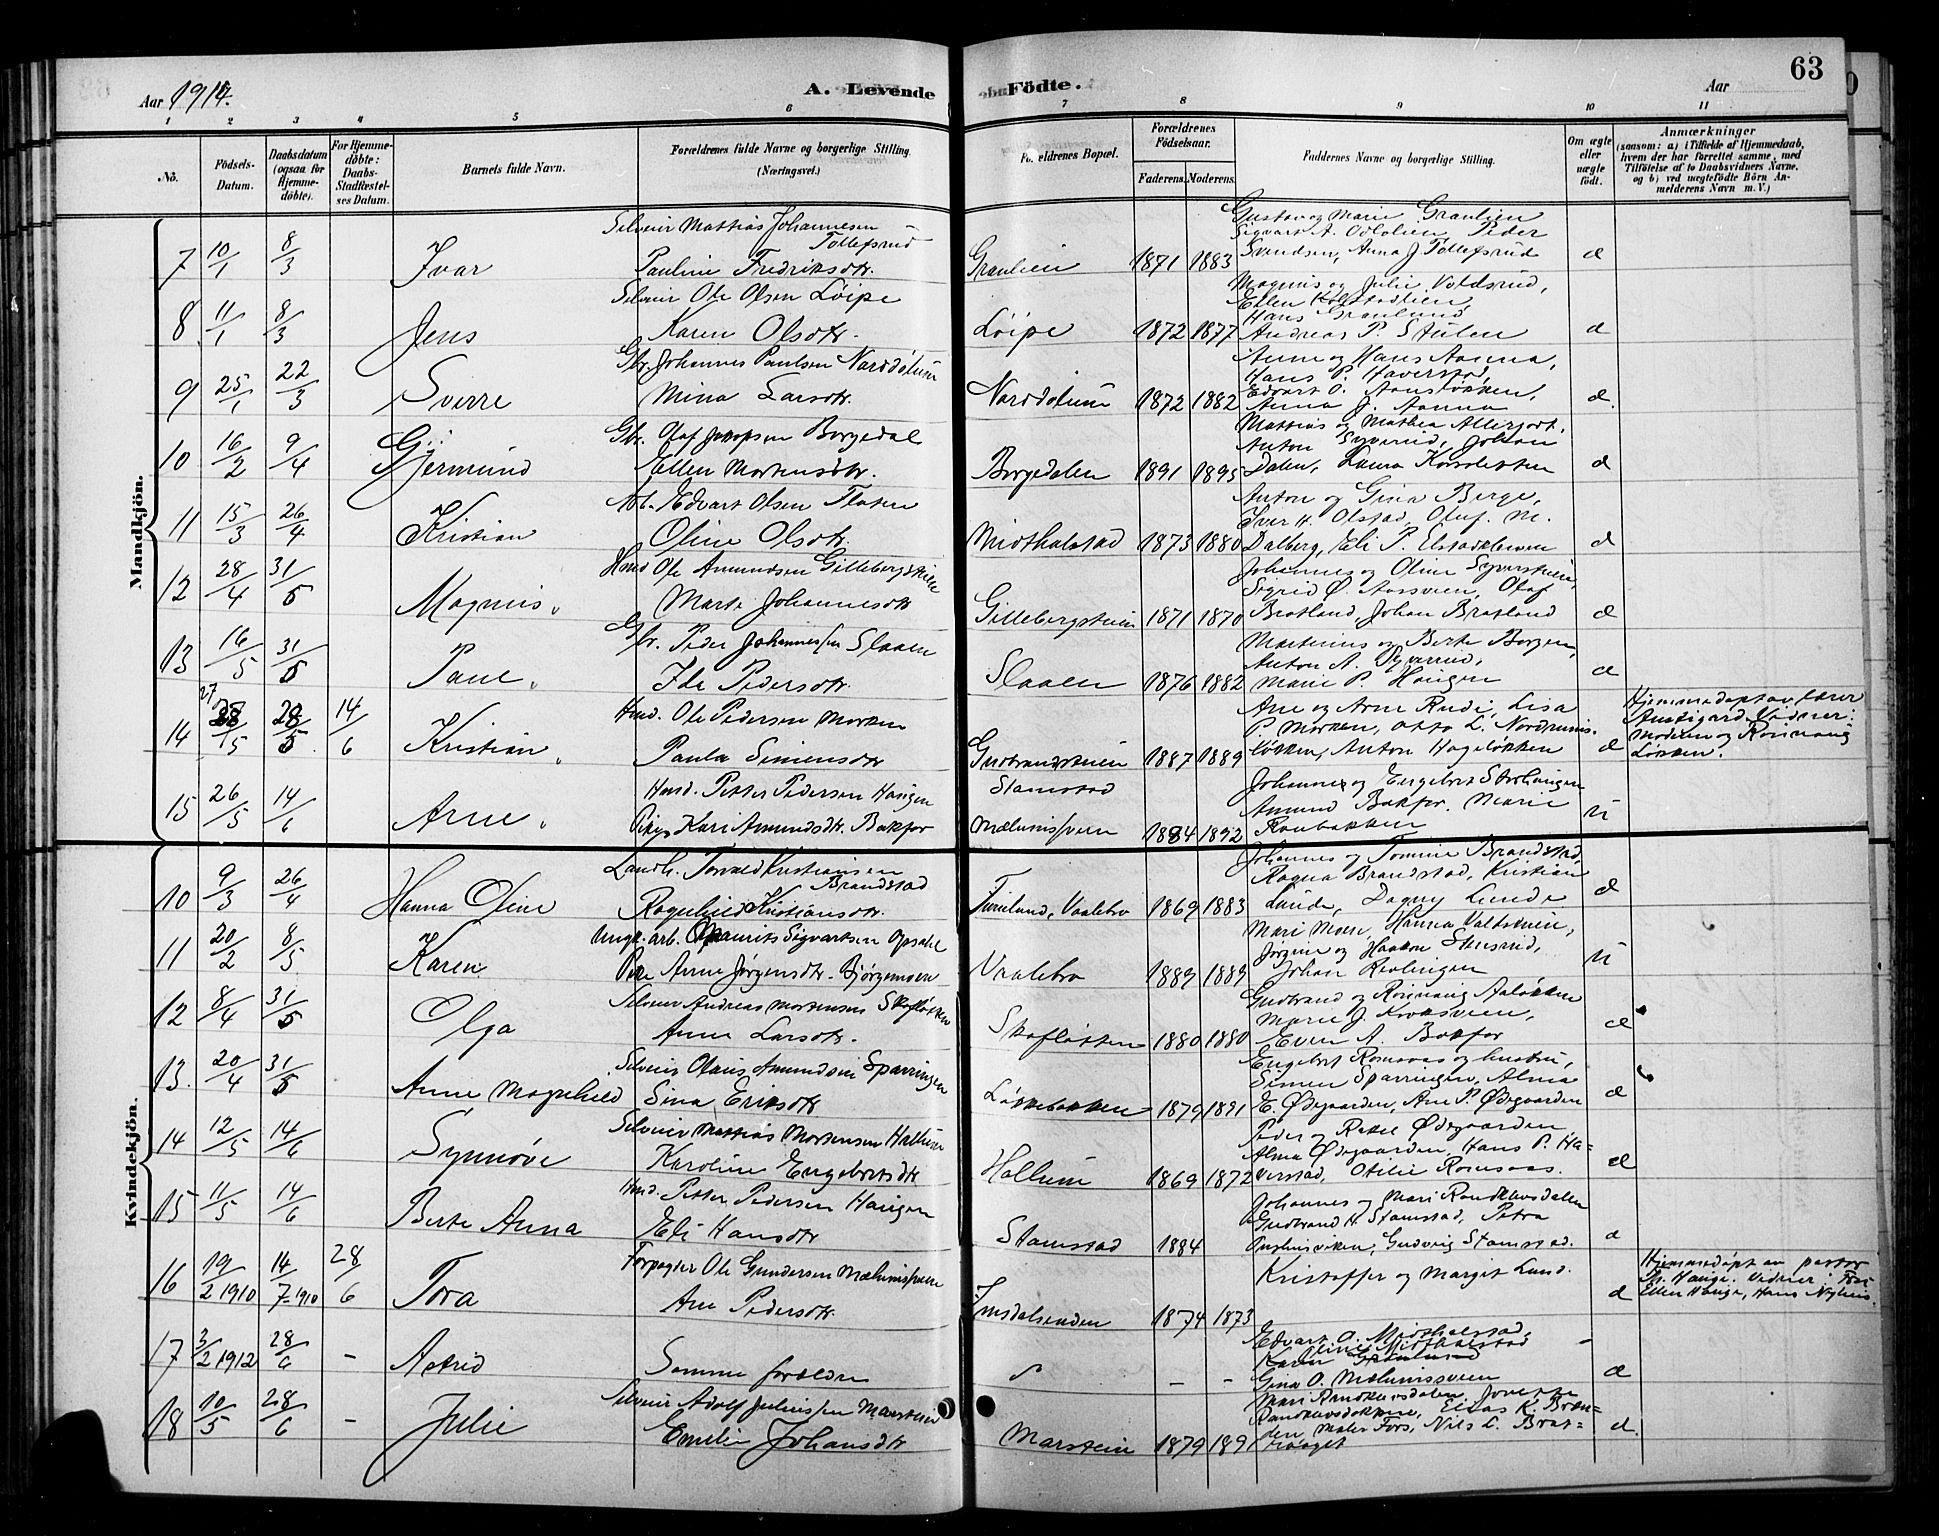 63
Aar 1914.
A. Levende
Födte.
Aar
1 2 3 4 5 6 7 8 9 10 11
No.
Födsels-Datum.
Daabsdatum (ogsaa for Hjemmedöbte).
For Hjemmedöbte: Daabs-Stadfæstelses Datum.
Barnets fulde Navn.
Forældrenes fulde Navne og borgerlige Stilling. (Næringsvei.)
Forældrenes Bopæl.
Forældrenes Födselsaar.
Faderens. Moderens.
Faddernes Navne og borgerlige Stilling.
Om ægte eller uægte födt.
Anmærkninger (saasom: a) i Tilfælde af Hjemmedaab, hvem der har forrettet samme, med Tilföielse af to Daabsvidners Navne, og b) ved uægtefödte Börn Anmelderens Navn m. V.)
Mandkjön.
7 10/1 8/3 Ivar
Selveier Mattias Johannesen Tollefsrud
Pauline Fredriksdtr.
Granlien 1871 1883
Gustav og Marie Granlien
Sigvart A. Odlolien Peder
Svendsen, Anna J Tollefsrud
8 11/1 8/3 Jens
Selveier Ole Olsen Löipe
Karen Olsdtr.
Löipe 1872 1877
Magnus og Julie Voldsrud,
Ellen Kolstadlien
Hans Granlund
Andreas P. Stulen
9 25/1 22/3 Sverre
Gbr. Johannes Paulsen Norddölum
Mina Larsdtr.
Norddölum 1872 1882
Anne og Hans Aanna,
Hans P. Haverstad,
Edvart O. Aansløkken,
Anna J. Aanna
10 16/2 9/4 Gjermund
Gbr. Olaf Jakopsen Borgedal
Ellen Mortensdtr.
Borgedalen 1891 1895
Mattias og Mathea Allergodt,
Anton Syverud, Johan
Dalen, Laura
11 15/3 26/4 Kristian
Arb. Edvart Olsen Floten
Oline Olsdtr.
Midthalstad 1873 1880
Anton og Gina Berge,
Iver H. Olstad, Oluf M.
Dalberg, Eli P.
12 28/4 31/5 Magnus
Hmd Ole Amundsen Gillebergsteien
Marte Johannesdtr
Gillebergsteien 1871 1870
Johannes og Oline
Sigrid Ø. Aassveen, Olaf
Bratland, Johan Bratland
13 16/5 31/5 Paul
Gbr. Peder Johannessen Slaaen
Ida Pedersdtr.
Slaaen 1876 1882
Martinius og Berte Borgen,
Anton A. Syverud,
Marie P. Haugen
14 27 28/5 28/5 14/6 Kristian
Hmd. Ole Pedersen Morken
Paula Simensdtr
Gudbrandsteien 1887 1889
Ane og Arne Rudi, Lisa
P. Morken, Otto L. Nordrums-
løkken, Anton Hageløkken
Hjemmedøpt av lærer
Austigard. Vidner:
Moderen og Rönnaug
Løkken.
15 26/5 14/6 Arne
Hmd. Petter Pedersen Haugen
Pike Kari Amundsdtr. Bakfor
Stamstad
Mælumsveen 1884 1892
Johannes og Engebret Storhaugen
Amund Bakfor. Marie
Raabakken
u
Kvindekjön.
10 9/3 26/4 Hanna Oline
Landh. Torvald Kristiansen Brandstad
Ragnhild Kristiansdtr.
Furulund, Vaalebro 1869 1883
Johannes og Tomine Brandstad,
Ragna Brandstad, Kristian
Lunde, Dagny Lunde
11 20/2 8/5 Karen
Ungk. arb. Maurits Sigvartsen Opsahl
Pike Anne Jørgensdtr. Bjørgemoen
Vaalebro 1889 1889
Mari Moen, Hanna
Jørgine og Haakon Stensrud,
Johan Revlingen
u
12 8/4 31/5 Olga
Selveier Andreas Mortensen Skofløkken
Anne Larsdtr.
Skofløkken 1880 1880
Gudbrand og Rönnaug Aaløkken
Marie J. Kroksveen,
Even A. Bakfor
13. 20/4 31/5 Anne Magnhild
Selveier Olaus Amundsen Sparringen
Sina Eriksdtr
Løkkebakken 1879 1891
Engebret Romsaas og hustru,
Simen Sparringen, Alma
E. Ødegaarden, Ane P. Ødegaarden
14 12/5 14/6 Synnøve
Selveier Mattias Mortensen Hallum
Karoline Engebretsdtr
Hallum 1869 1872
Peder og Rakel Ødegaarden
Alma Ødegaarden, Hans P. Ha-
verstad, Otilie Romsaas.
15 11/5 14/6 Berte Anna
Hmd. Petter Pedersen Haugen
Eli Hansdtr
Stamstad 1884
Johannes og Mari Randklevsdalen
Gudbrand H. Stamstad, Petra
Gudveig Stamstad.
16 19/2 1910 14/7 1910 28/6 Tora
Forpagter Ole Gundersen Mælumsveen
Ane Pedersdtr.
Imsdalsenden 1874 1873
Kristoffer og Marget Lund.
Hjemmedøpt av pastor
Th. Hauge. Vidner: Fru
Ellen Hauge, Hans Nyhus.
17 3/2 1912 28/6 - Astrid
Samme forældre
- -
Edvart O. Midthalstad,
Oline Midthalstad
Gina O. Mælumsveen
18 10/5 28/6 - Julie
Selveier Adolf Juliussen Marstein
Emilie Johansdtr
Marstein 1879 1891
Mari Randklevsdalen,
Elias K. Bræn-
den, Maler Fors, Nils L. Brat-